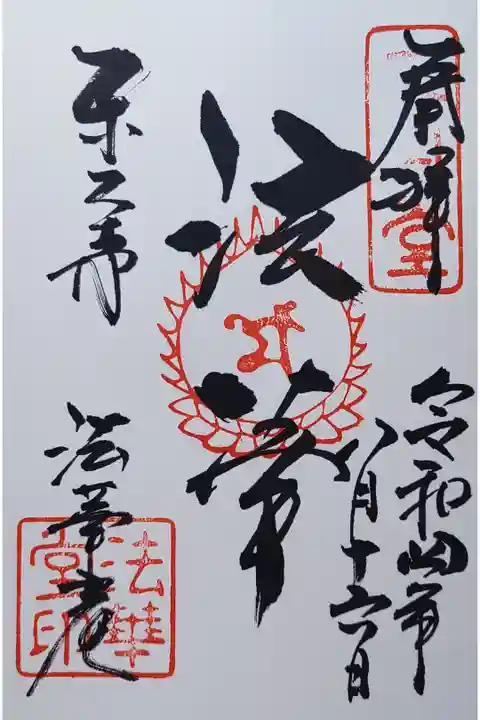 奉拝
令和四年
八月十六日
法華
東大寺
法華堂
法華
堂印